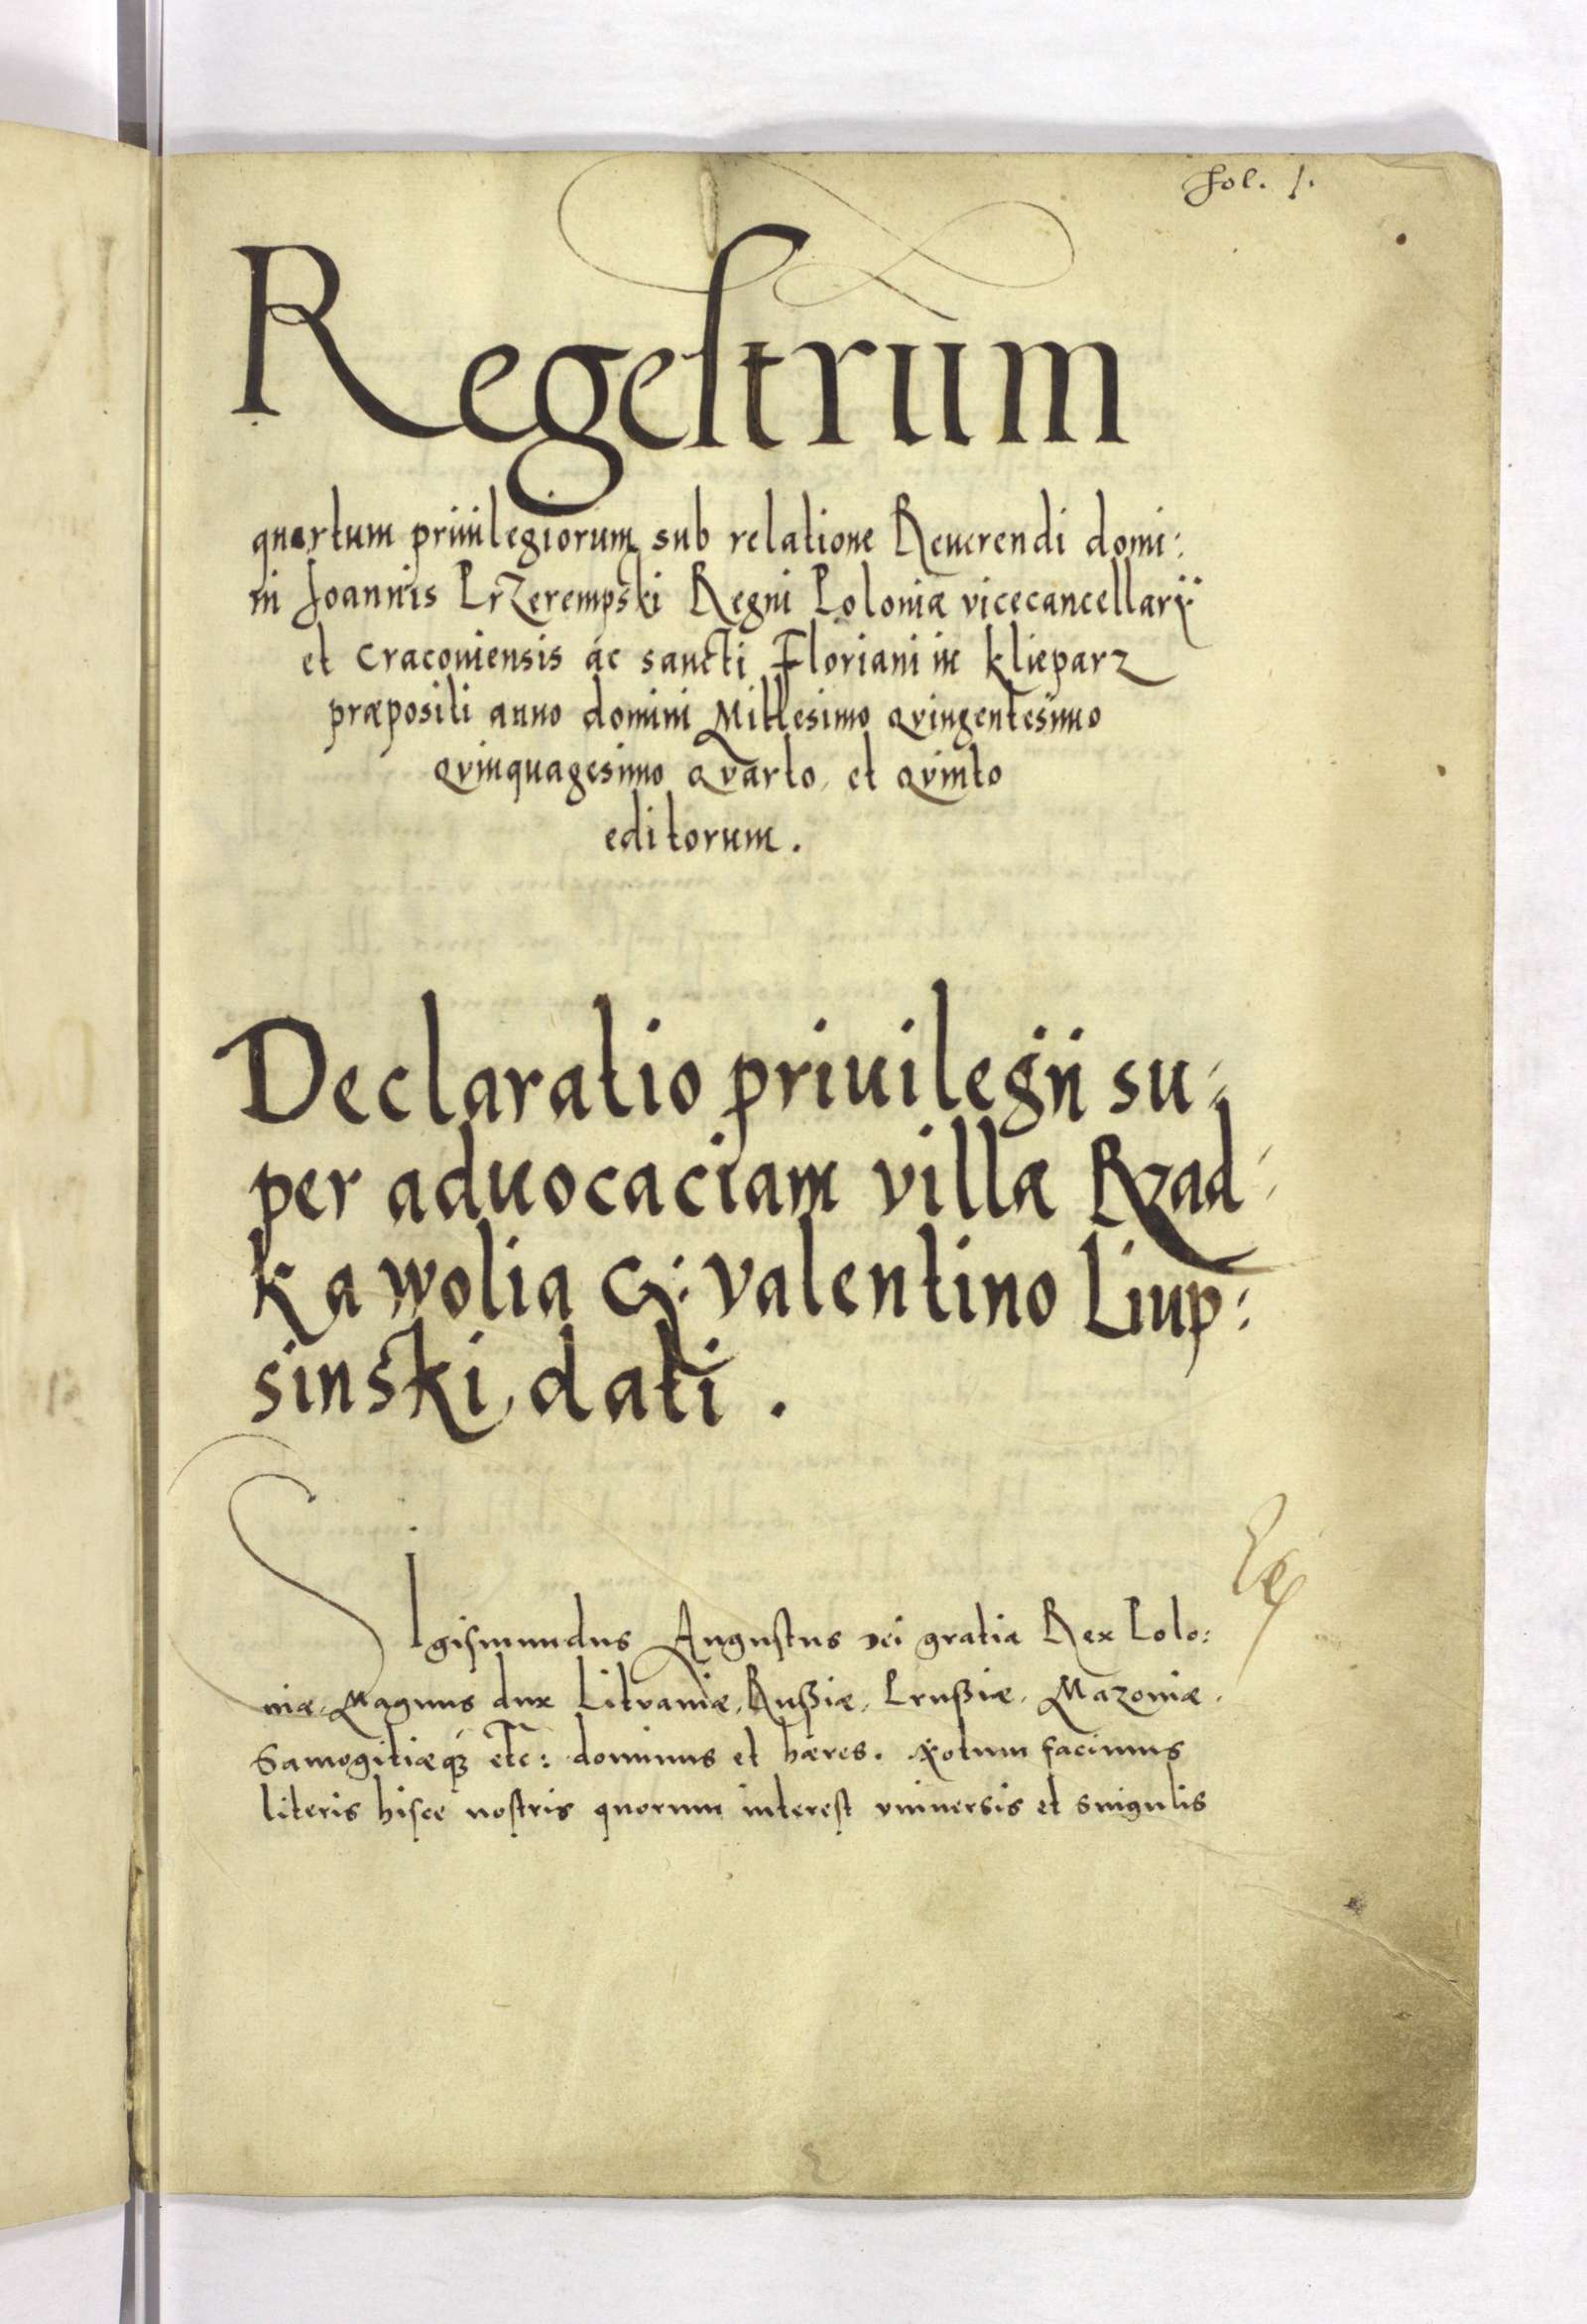 fol. 1.
Regestrum
quartum priuilegiorum sub relatione Reuerendi domi:
ni Joannis Przerempski Regni Poloniæ vicecancellarij
et Cracouiensis ac sancti Floriani in klieparz
præpositi anno domini Millesimo Qvingentesimo
Qvinquagesimo Qvarto, et Qvinto
editorum.
Declaratio priuilegij su:
per aduocaciam villæ Rzad:
ka wolia G: Valentino Liup:
sinski, dati.
SIgismundus Augustus dei gratia Rex Polo:
niæ, Magnus dux Litvaniæ, Rußiæ, Prußiæ, Mazoniæ,
Samogitiæq3 etc: dominus et hæres. Notum facimus
literis hisce nostris quorum interest vniuersis et singulis